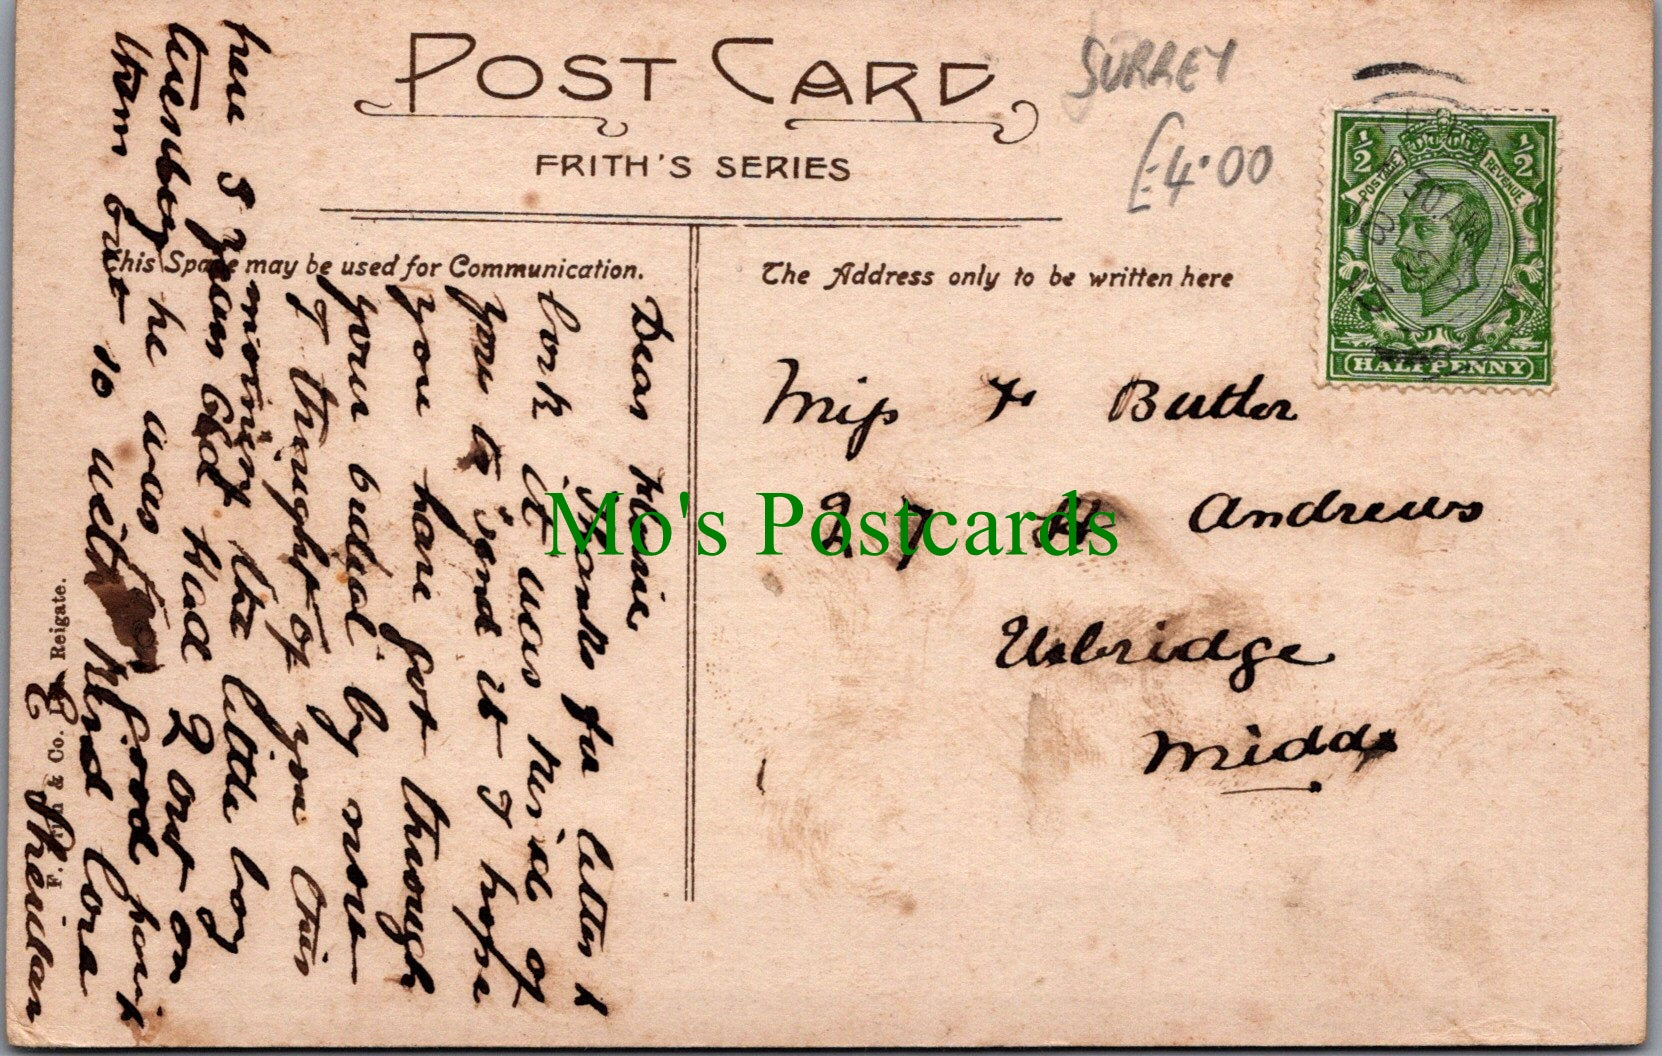 POST CARD
FRITH'S SERIES
SURREY
£4.00
½ ½
POSTAGE REVENUE
HALFPENNY
This Space may be used for Communication.
The Address only to be written here
Miss F Butler
27 St Andrews
Uxbridge
Middx
Dear
Thanks for letter &
it was kind of
you to send it I hope
you have got through
your ordeal by now
I thought of you this
moment the little boy
here 3 years old had 2 out on
he was good
them but is with kind love
Sheridan
F. Frith & Co. Ltd. Reigate.
Mo's Postcards